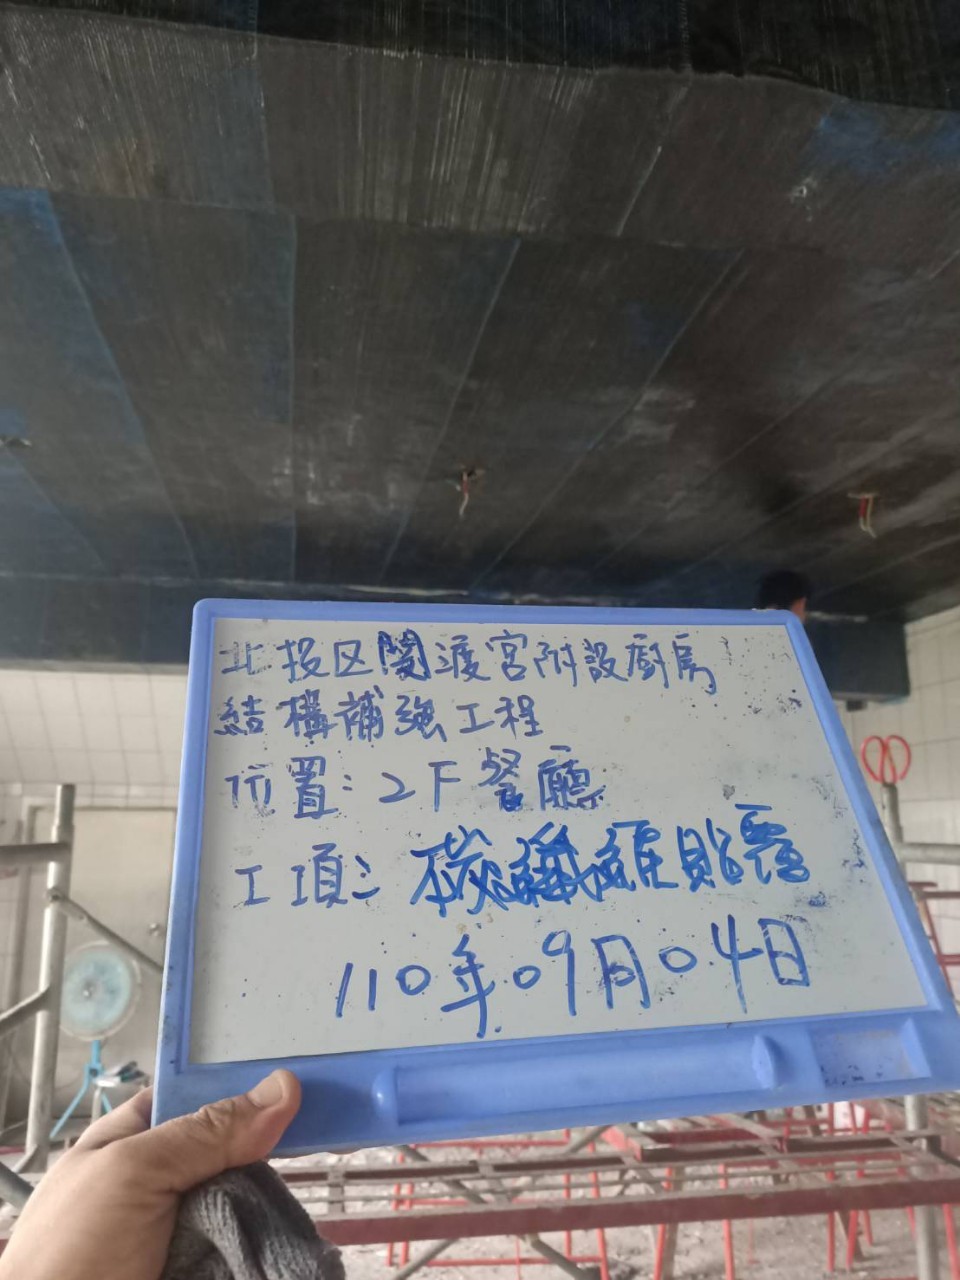 北投区関渡宮附設廚房
結構補強工程
位置：2F餐廳
工項：碳纖維貼覆
110年09月04日